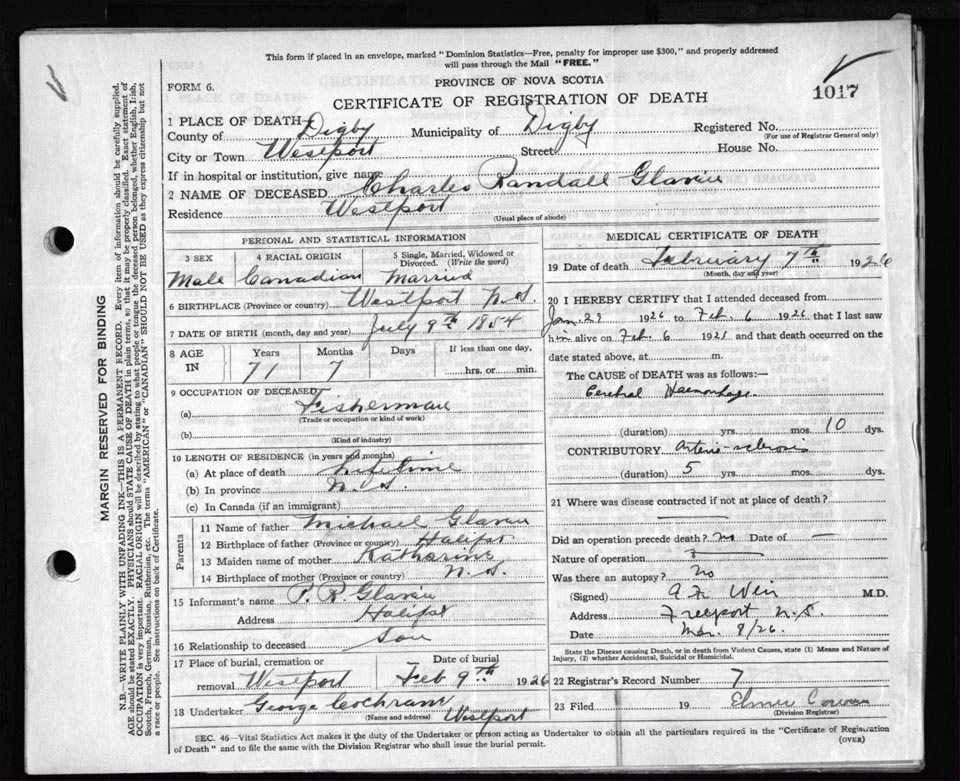 This form if placed in an envelope, marked "Dominion Statistics—Free, penalty for improper use $300," and properly addressed
will pass through the Mail "FREE."
FORM 6.
PROVINCE OF NOVA SCOTIA
CERTIFICATE OF REGISTRATION OF DEATH
1017
1 PLACE OF DEATH—
County of Digby Municipality of Digby Registered No.
(For use of Registrar General only)
City or Town Westport Street House No.
If in hospital or institution, give name
2 NAME OF DECEASED Charles Randall Glavin
Residence Westport
(Usual place of abode)
PERSONAL AND STATISTICAL INFORMATION
3 SEX 4 RACIAL ORIGIN 5 Single, Married, Widowed or Divorced. (Write the word)
Male Canadian Married
6 BIRTHPLACE (Province or country) Westport N.S.
7 DATE OF BIRTH (month, day and year) July 9th 1854
8 AGE IN Years Months Days If less than one day,
71 7 hrs. or min.
9 OCCUPATION OF DECEASED
(a) Fisherman
(Trade or occupation or kind of work)
(b)
(Kind of industry)
10 LENGTH OF RESIDENCE (in years and months)
(a) At place of death lifetime
(b) In province N.S.
(c) In Canada (if an immigrant)
Parents
11 Name of father Michael Glavin
12 Birthplace of father (Province or country) Halifax
13 Maiden name of mother Katharine
14 Birthplace of mother (Province or country) N.S.
15 Informant's name P. R. Glavin
Address Halifax
16 Relationship to deceased Son
17 Place of burial, cremation or removal Westport Date of burial Feb 9th 1926
18 Undertaker George Cochran Westport
(Name and address)
MEDICAL CERTIFICATE OF DEATH
19 Date of death February 7th 1926
(Month, day and year)
20 I HEREBY CERTIFY that I attended deceased from
Jan. 29 1926 to Feb. 6 1926 that I last saw
him alive on Feb. 6 1926 and that death occurred on the
date stated above, at m.
The CAUSE of DEATH was as follows:—
Cerebral Haemorhage
(duration) yrs. mos. 10 dys.
CONTRIBUTORY Arterio-sclerosis
(duration) 5 yrs. mos. dys.
21 Where was disease contracted if not at place of death?
Did an operation precede death? no Date of —
Nature of operation
Was there an autopsy? No
(Signed) A. F. Weir M.D.
Address Freeport N.S.
Date Mar. 8/26.
State the Disease causing Death, or in death from Violent Causes, state (1) Means and Nature of
Injury, (2) whether Accidental, Suicidal or Homicidal.
22 Registrar's Record Number 7
23 Filed 19 Elmer
(Division Registrar)
SEC. 46—Vital Statistics Act makes it the duty of the Undertaker or person acting as Undertaker to obtain all the particulars required in the "Certificate of Registration
of Death" and to file the same with the Division Registrar who shall issue the burial permit.
(OVER)
MARGIN RESERVED FOR BINDING
N.B.—WRITE PLAINLY WITH UNFADING INK—THIS IS A PERMANENT RECORD. Every item of information should be carefully supplied.
AGE should be stated EXACTLY. PHYSICIANS should STATE CAUSE OF DEATH in plain terms, so that it may be properly classified. Exact statement of
OCCUPATION is very important. RACIAL ORIGIN will be described by stating to what people or tongue the deceased person belonged, whether English, Irish,
Scotch, French, German, Russian, Ruthenian, etc. The terms "AMERICAN" or "CANADIAN" SHOULD NOT BE USED as they express citizenship but not
a race or people. See instructions on back of Certificate.